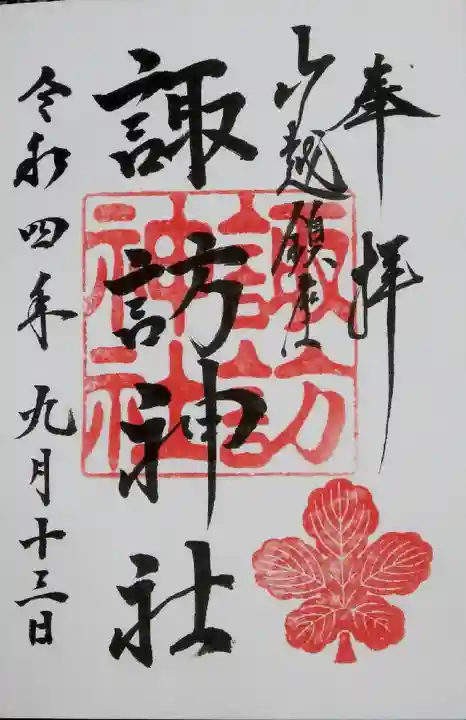 奉拝
山越鎮座
諏訪神社
諏訪
神社
令和四年九月十三日